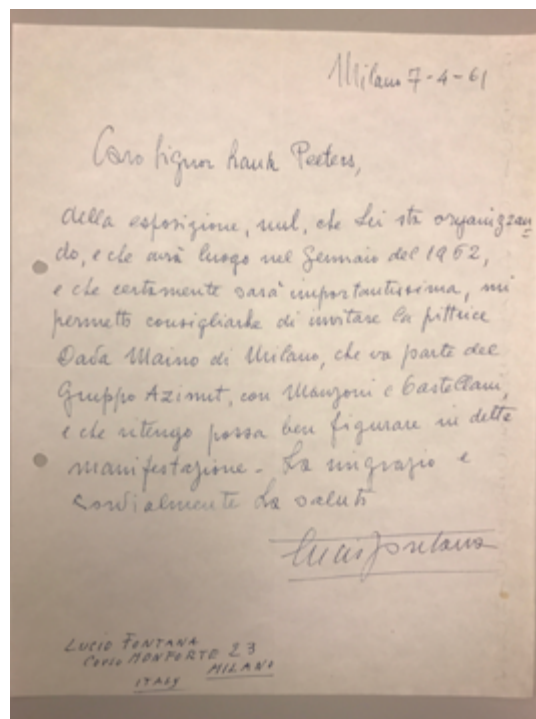 Milano 7-4-61
Caro Signor Hank Peeters,
della esposizione, nul, che Lei sta organizzan
do, e che avrà luogo nel Gennaio del 1962,
e che certamente sarà importantissima, mi
permetto consigliarle di invitare la pittrice
Dada Maino di Milano, che va parte del
Gruppo Azimut, con Manzoni e Castellani,
e che ritengo possa ben figurare in detta
manifestazione - La ringrazio e
cordialmente La saluto
Lucio Fontana
LUCIO FONTANA
CORSO MONFORTE 23
MILANO
ITALY